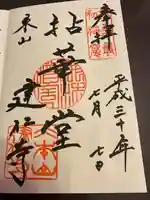 奉拝
平成三十年
七月七日
拈華堂
東山
建仁寺